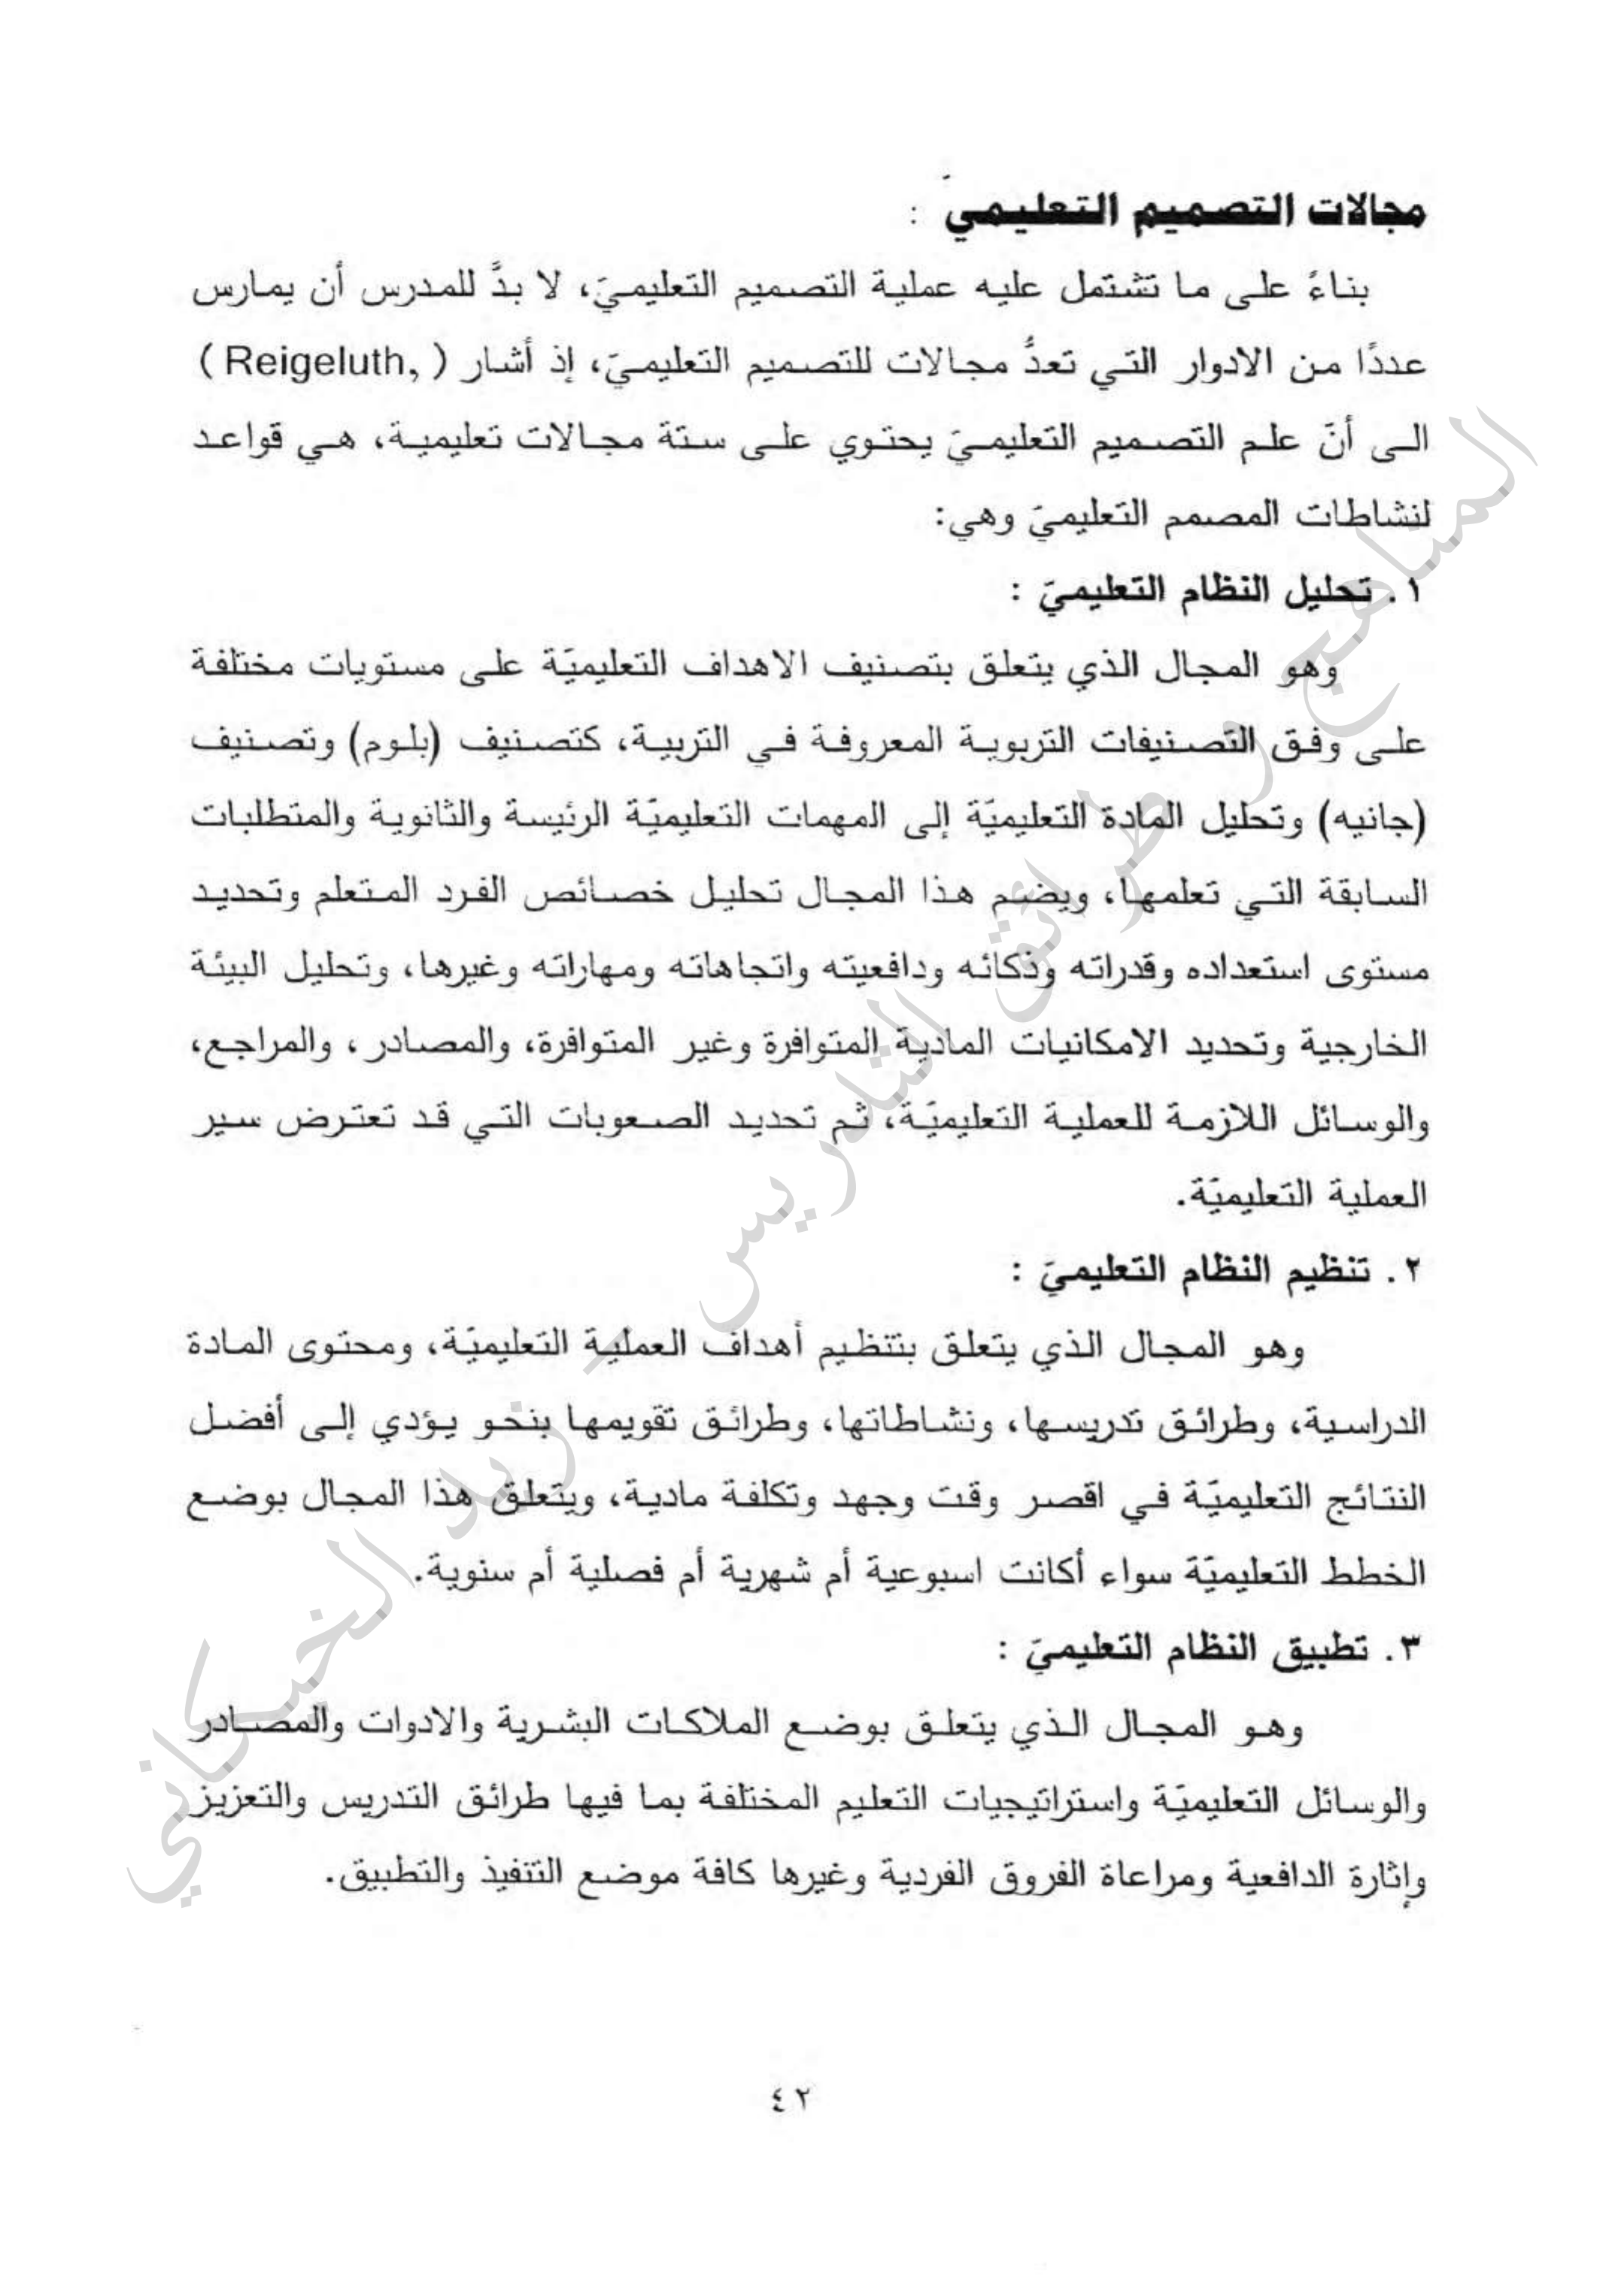 مجالات التصميم التعليميّ :
بناءً على ما تشتمل عليه عملية التصميم التعليميّ، لا بدَّ للمدرس أن يمارس
عددًا من الادوار التي تعدُّ مجالات للتصميم التعليميّ، إذ أشار ( Reigeluth, )
الى أنّ علم التصميم التعليميّ يحتوي على ستة مجالات تعليمية، هي قواعد
لنشاطات المصمم التعليميّ وهي:
١. تحليل النظام التعليميّ :
وهو المجال الذي يتعلق بتصنيف الاهداف التعليميّة على مستويات مختلفة
على وفق التصنيفات التربوية المعروفة في التربية، كتصنيف (بلوم) وتصنيف
(جانيه) وتحليل المادة التعليميّة إلى المهمات التعليميّة الرئيسة والثانوية والمتطلبات
السابقة التي تعلمها، ويضم هذا المجال تحليل خصائص الفرد المتعلم وتحديد
مستوى استعداده وقدراته وذكائه ودافعيته واتجاهاته ومهاراته وغيرها، وتحليل البيئة
الخارجية وتحديد الامكانيات المادية المتوافرة وغير المتوافرة، والمصادر، والمراجع،
والوسائل اللازمة للعملية التعليميّة، ثم تحديد الصعوبات التي قد تعترض سير
العملية التعليميّة.
٢. تنظيم النظام التعليميّ :
وهو المجال الذي يتعلق بتنظيم أهداف العملية التعليميّة، ومحتوى المادة
الدراسية، وطرائق تدريسها، ونشاطاتها، وطرائق تقويمها بنحو يؤدي إلى أفضل
النتائج التعليميّة في اقصر وقت وجهد وتكلفة مادية، ويتعلق هذا المجال بوضع
الخطط التعليميّة سواء أكانت اسبوعية أم شهرية أم فصلية أم سنوية.
٣. تطبيق النظام التعليميّ :
وهو المجال الذي يتعلق بوضع الملاكات البشرية والادوات والمصادر
والوسائل التعليميّة واستراتيجيات التعليم المختلفة بما فيها طرائق التدريس والتعزيز
وإثارة الدافعية ومراعاة الفروق الفردية وغيرها كافة موضع التنفيذ والتطبيق.
٤٢
المناهج و طرائق التدريس – زيد الخيكاني